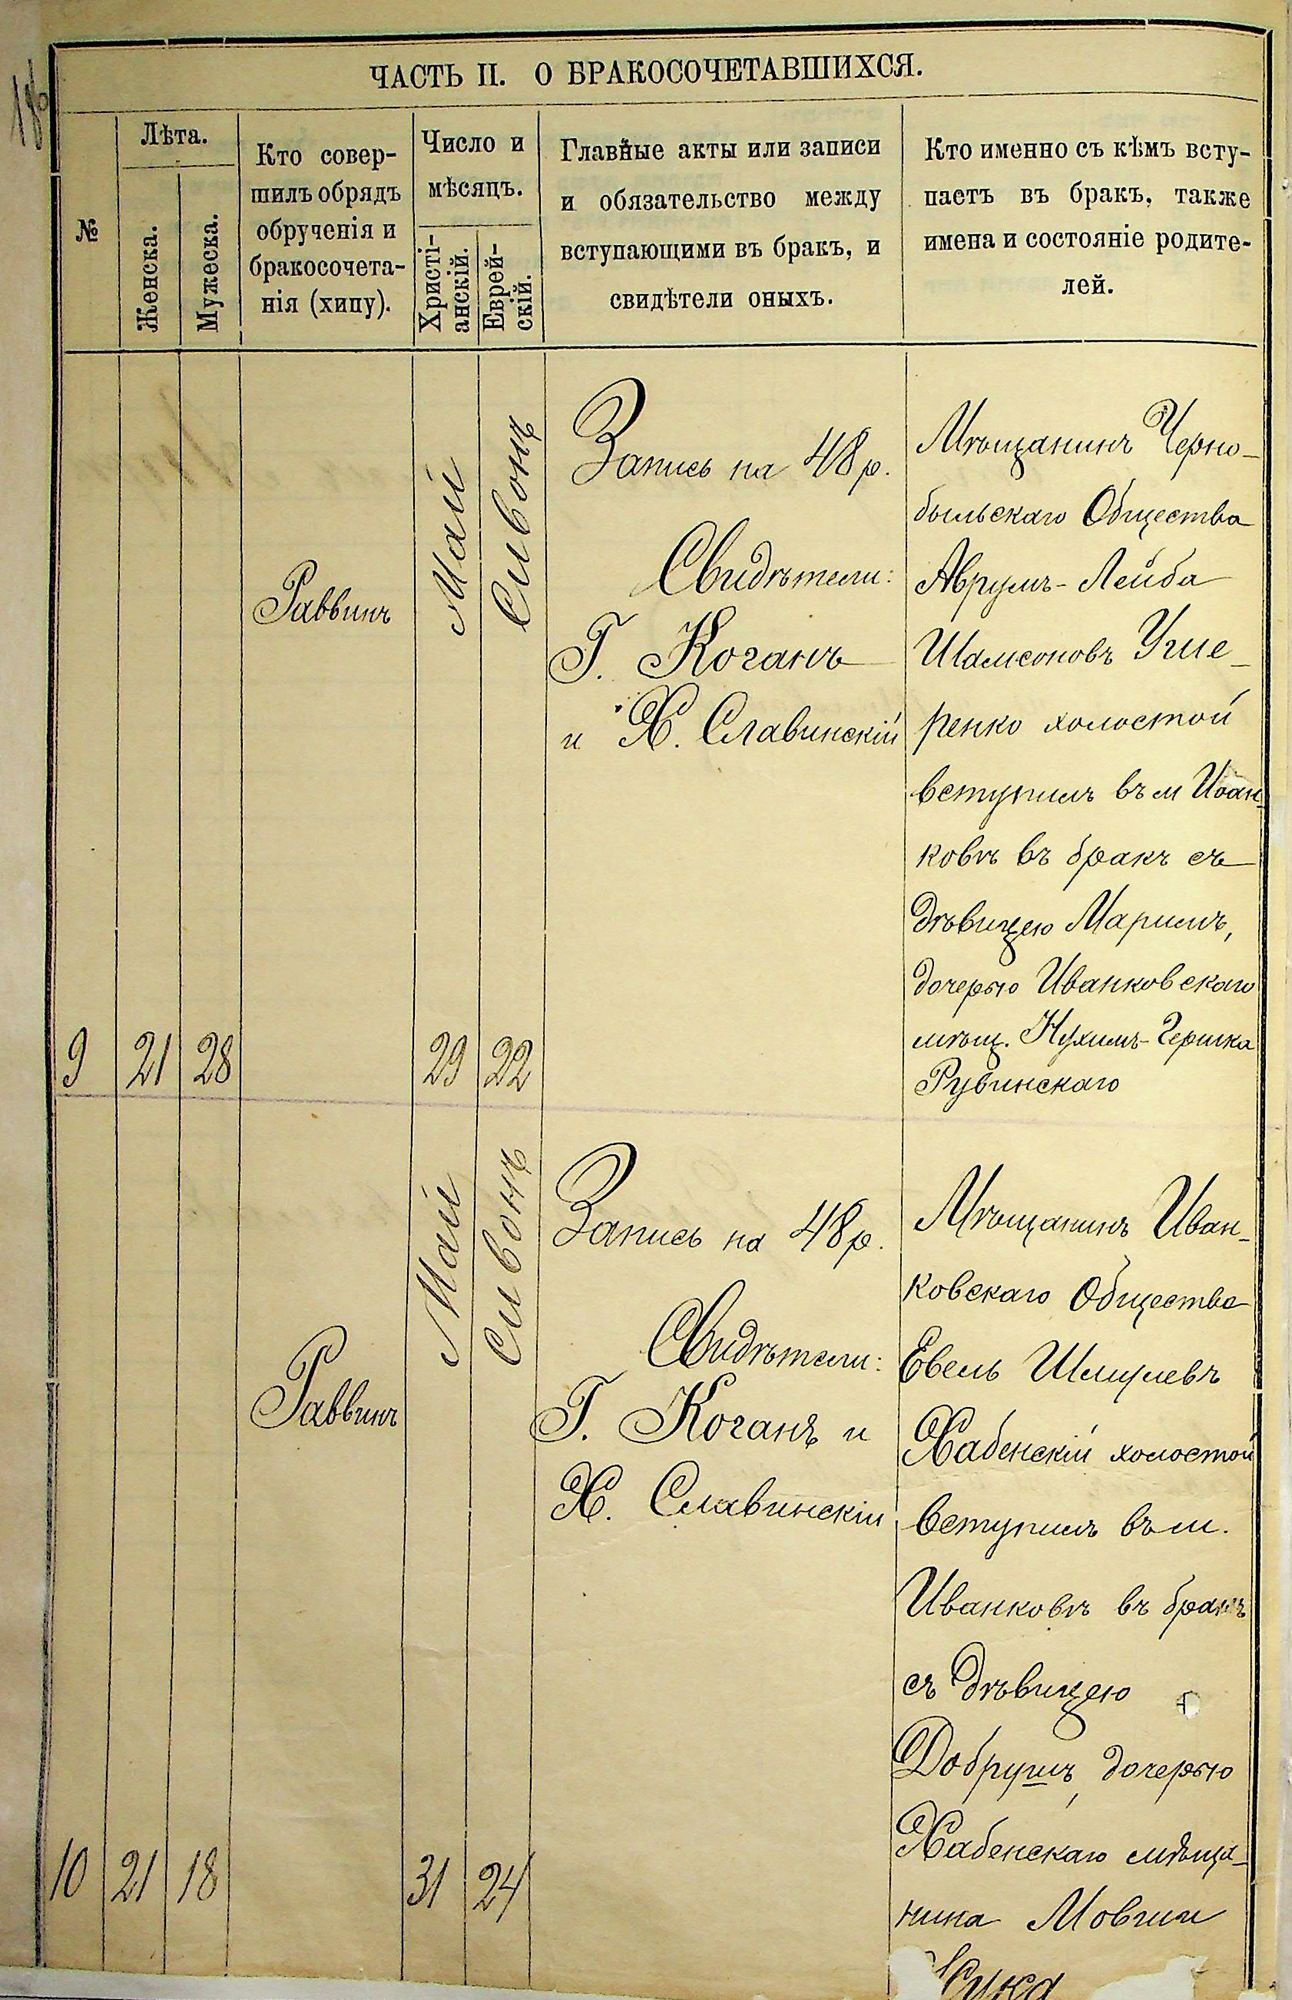 ЧАСТЬ II. О БРАКОСОЧЕТАВШИХСЯ.
№
Лѣта.
Женска.
Мужеска.
Кто совер-
шилъ обрядъ
обрученія и
бракосочета-
нія (хипу).
Число и
мѣсяцъ.
Христі-
анскій.
Еврей-
скій.
Главные акты или записи
и обязательство между
вступающими въ бракъ, и
свидѣтели оныхъ.
Кто именно съ кѣмъ всту-
паетъ въ бракъ, также
имена и состояніе родите-
лей.
9
21
28
Раввинъ
Май
29
Сивонъ
22
Запись на 48 р.
Свидѣтели:
Г. Коганъ
и Х. Славинскій
Мѣщанинъ Черно-
быльскаго Общества
Аврумъ-Лейба
Шамсоновъ Уше-
ренко холостой
вступилъ въ м Иван-
ковѣ въ бракъ съ
дѣвицею Маримъ,
дочерью Иванковскаго
мѣщ. Нухимъ-Гершка
Рувинскаго
10
21
18
Раввинъ
Май
31
Сивонъ
24
Запись на 48 р.
Свидѣтели:
Г. Коганъ и
Х. Славинскій
Мѣщанинъ Иван-
ковскаго Общества
Евель Шмулевъ
Хабенскій холостой
вступилъ въ м.
Иванковѣ въ бракъ
съ дѣвицею
Добрушъ, дочерью
Хабенскаго мѣща-
нина Мовши